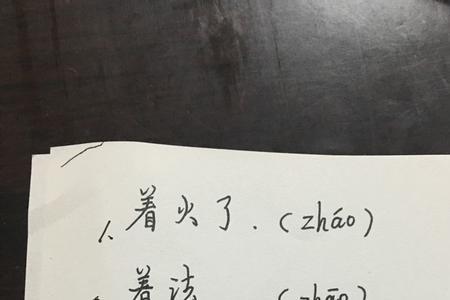 1、着火了.(zháo)
着法 (zhāo)